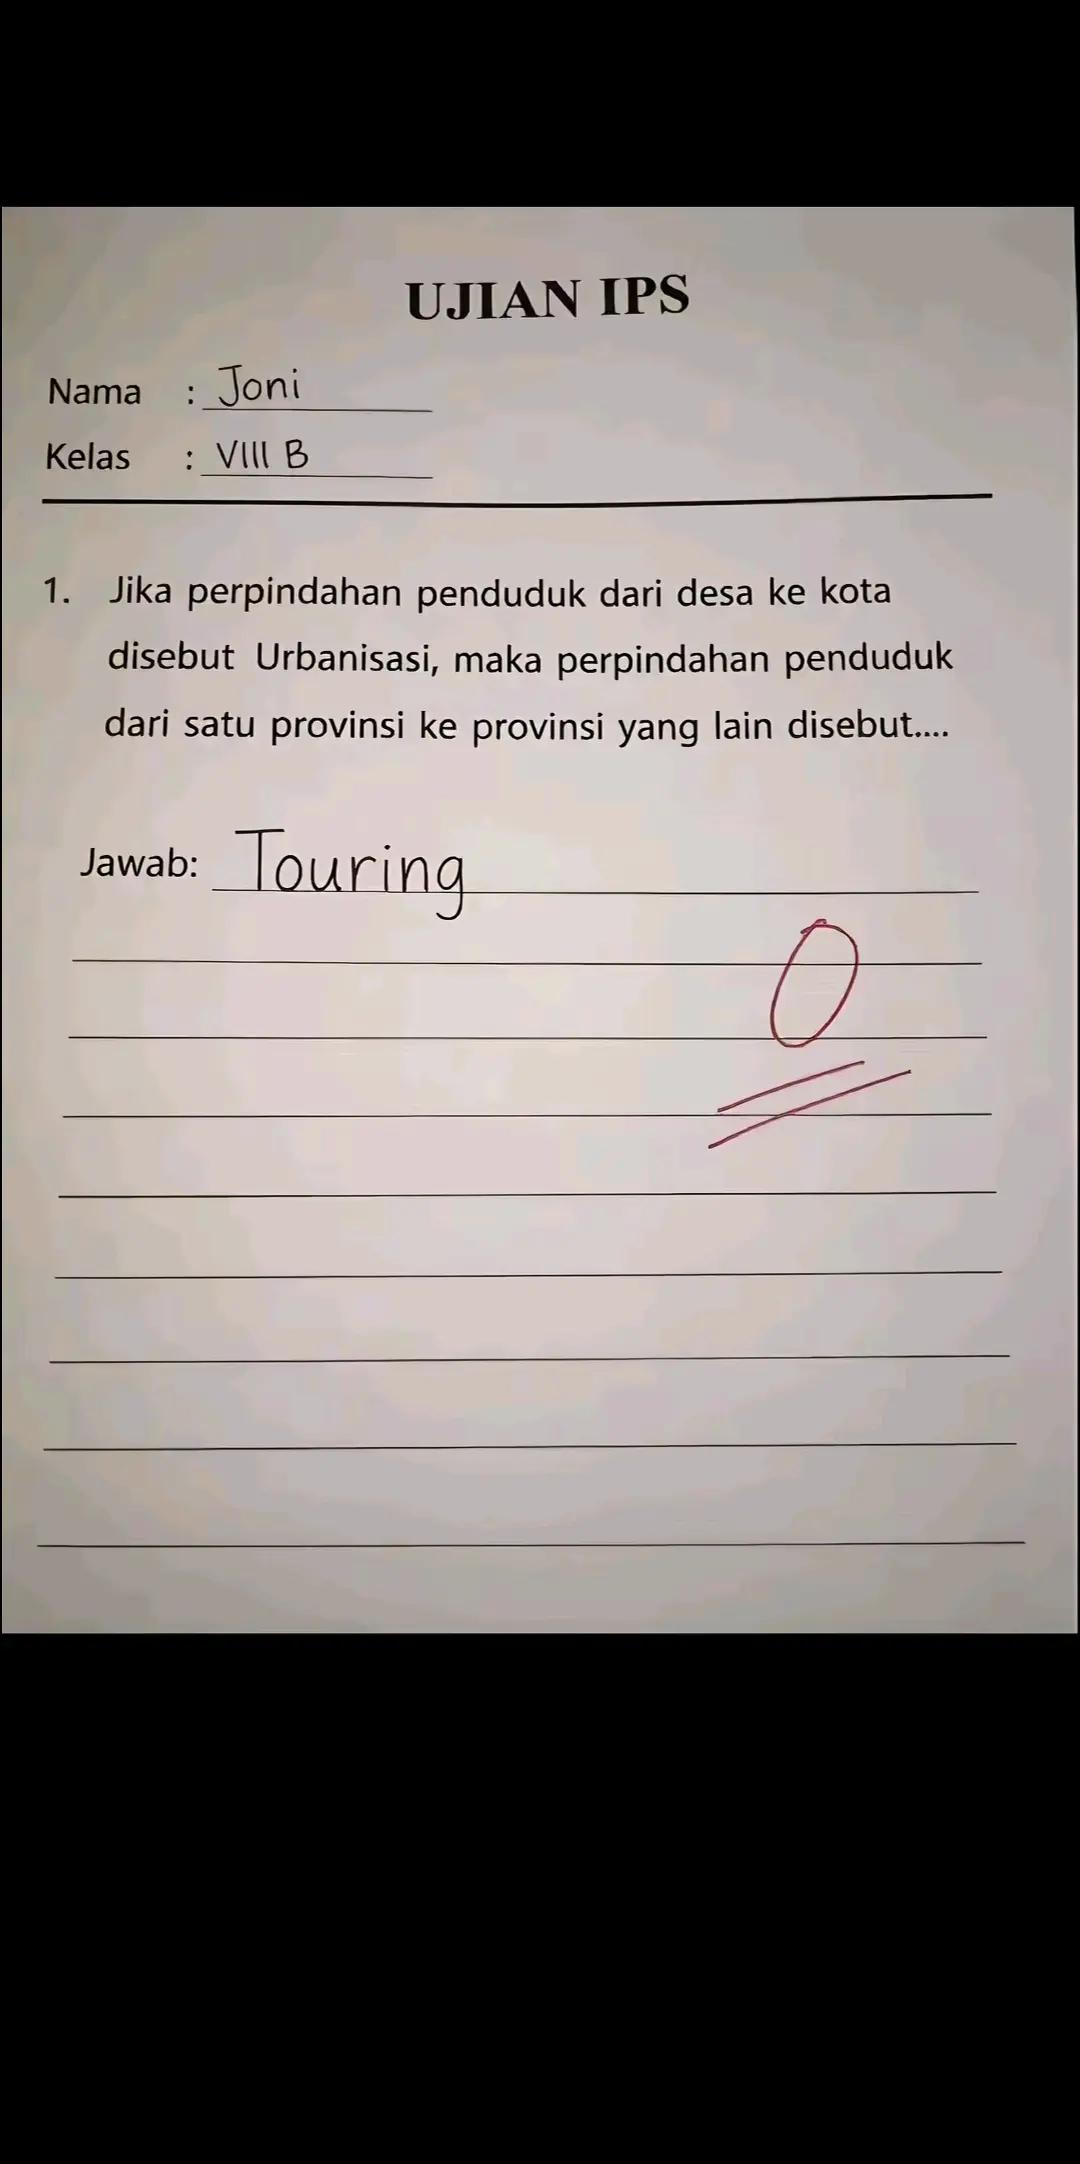 UJIAN IPS
Nama : Joni
Kelas : VIII B
1. Jika perpindahan penduduk dari desa ke kota
disebut Urbanisasi, maka perpindahan penduduk
dari satu provinsi ke provinsi yang lain disebut....
Jawab: Touring
0